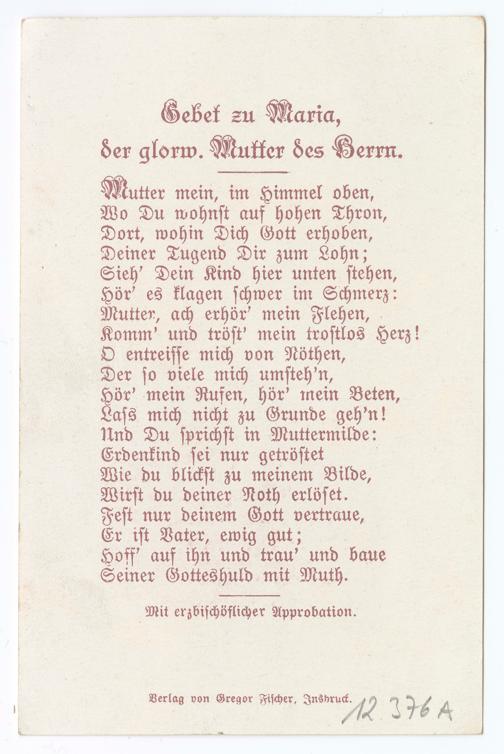 Gebet zu Maria,
der glorw. Mutter des Herrn.
Mutter mein, im Himmel oben,
Wo Du wohnst auf hohen Thron,
Dort, wohin Dich Gott erhoben,
Deiner Tugend Dir zum Lohn;
Sieh' Dein Kind hier unten stehen,
Hör' es klagen schwer im Schmerz:
Mutter, ach erhör' mein Flehen,
Komm' und tröst' mein trostlos Herz!
O entreisse mich von Nöthen,
Der so viele mich umsteh'n,
Hör' mein Rufen, hör' mein Beten,
Lass mich nicht zu Grunde geh'n!
Und Du sprichst in Muttermilde:
Erdenkind sei nur getröstet
Wie du blickst zu meinem Bilde,
Wirst du deiner Noth erlöset.
Fest nur deinem Gott vertraue,
Er ist Vater, ewig gut;
Hoff' auf ihn und trau' und baue
Seiner Gotteshuld mit Muth.
Mit erzbischöflicher Approbation.
Verlag von Gregor Fischer, Innsbruck.
12 376 A